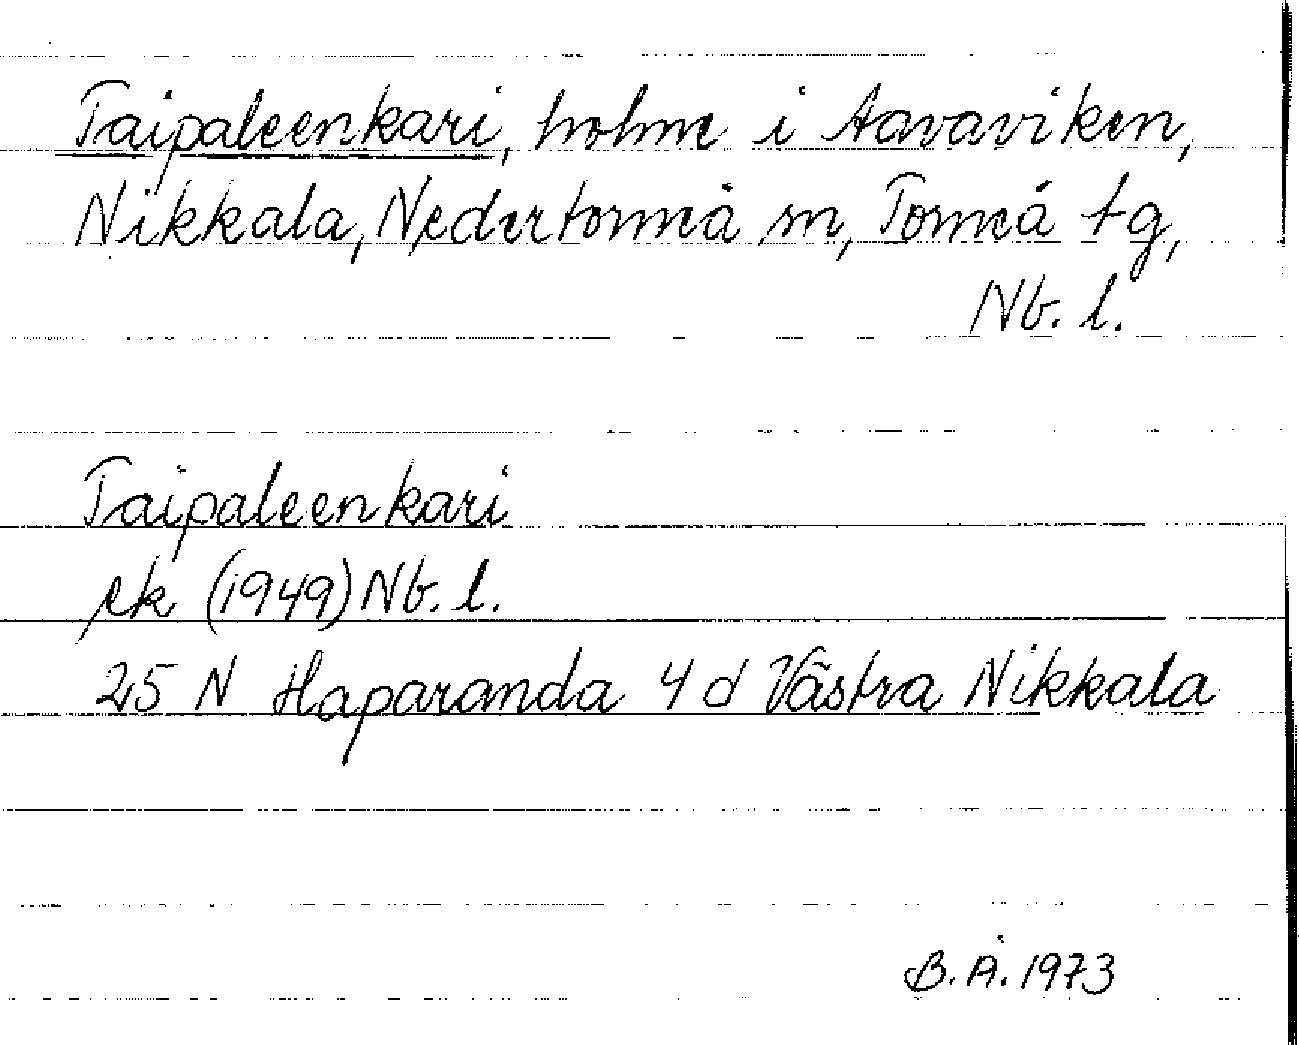 Taipaleenkari, holme i Aavaviken,
Nikkala, Nedertorneå sn, Torneå tg,
Nb. l.
Taipaleenkari
ek (1949) Nb. l.
25 N Haparanda 4 d Västra Nikkala
B. Å. 1973